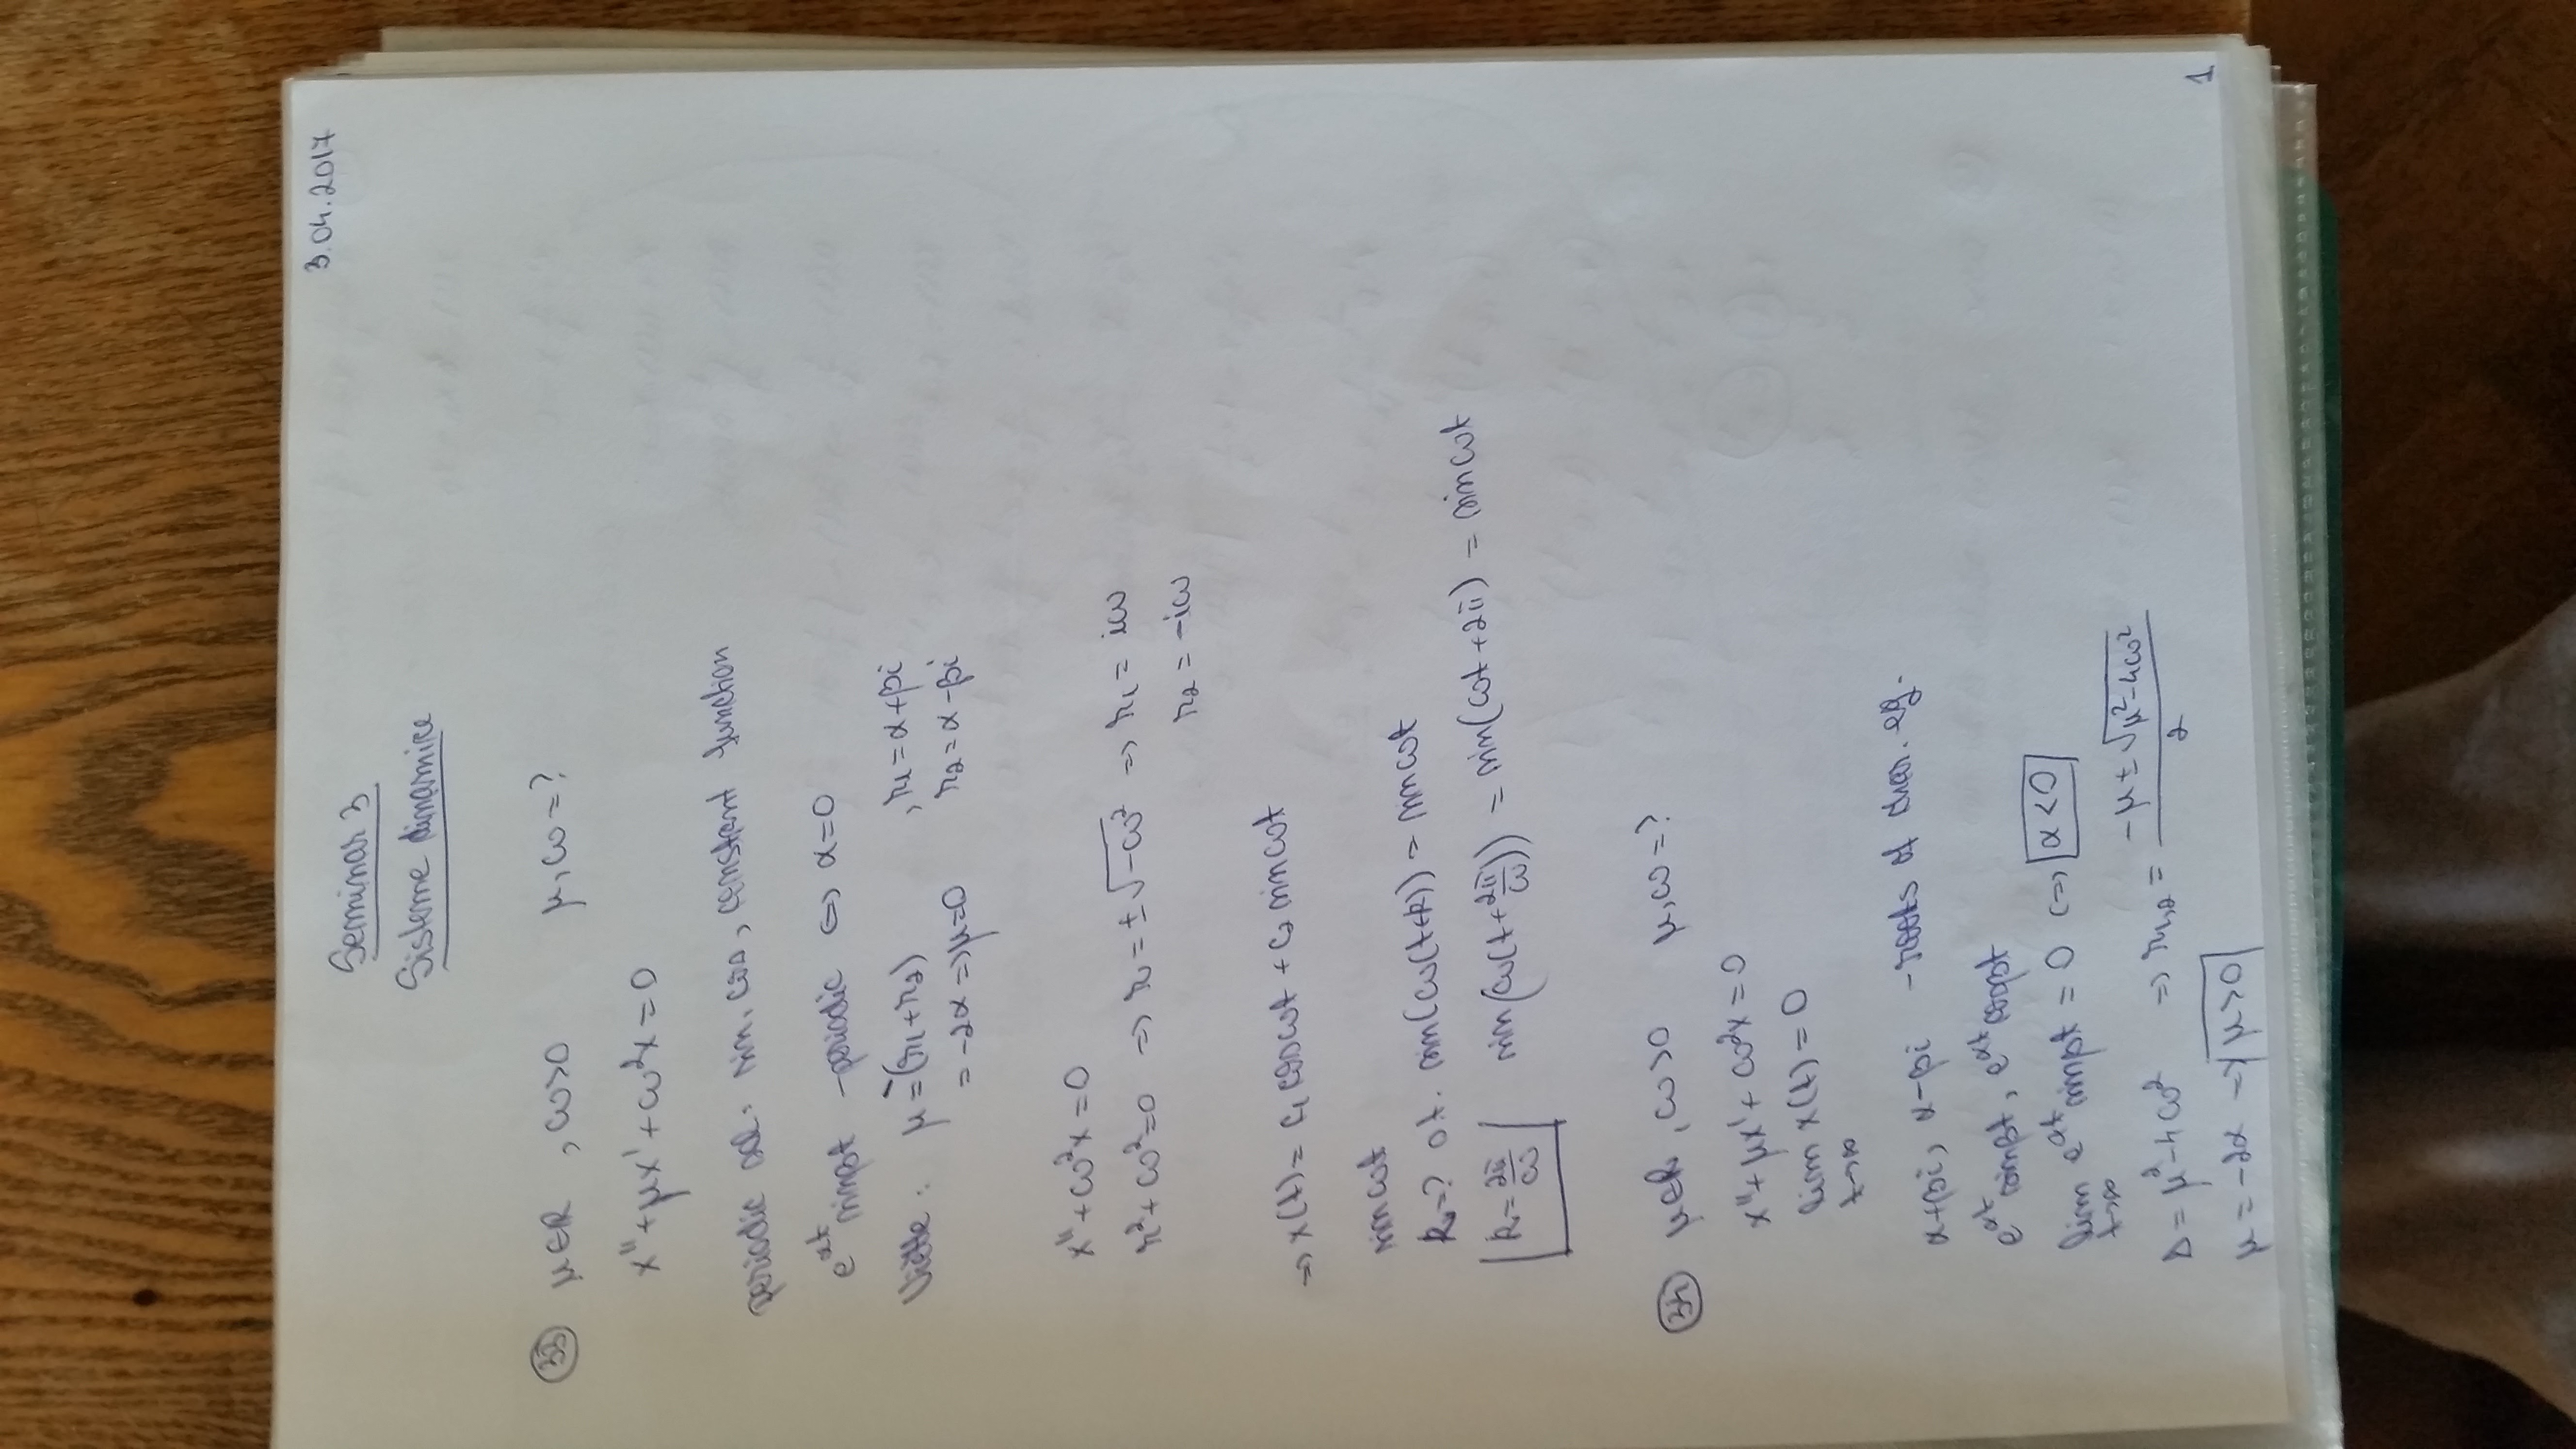 3.04.2017
Seminar 3
Sisteme dinamice
33 μ∈R , ω>0 μ,ω=?
x''+μx'+ω²x=0
periodic sol: sin, cos, constant function
e^αt sinβt -periodic ⇔ α=0
Viète: μ=-(r₁+r₂) , r₁=α+βi
=-2α ⇒ μ=0 r₂=α-βi
x''+ω²x=0
r²+ω²=0 ⇒ r=±√-ω² ⇒ r₁=iω
r₂=-iω
⇒ x(t)= c₁cosωt + c₂ sinωt
sinωt
k=? a.t. sin(ω(t+k)) = sinωt
k=2π/ω sin(ω(t+2π/ω)) = sin(ωt+2π) = sinωt
34 μ∈R , ω>0 μ,ω=?
x''+μx'+ω²x=0
lim x(t)=0
t→∞
α+βi, α-βi -roots of char. eq.
e^αt sinβt, e^αt cosβt
lim e^αt sinβt = 0 ⇔ α<0
t→∞
Δ=μ²-4ω² ⇒ r₁,₂ = (-μ±√μ²-4ω²)/2
μ=-2α ⇒ μ>0
1